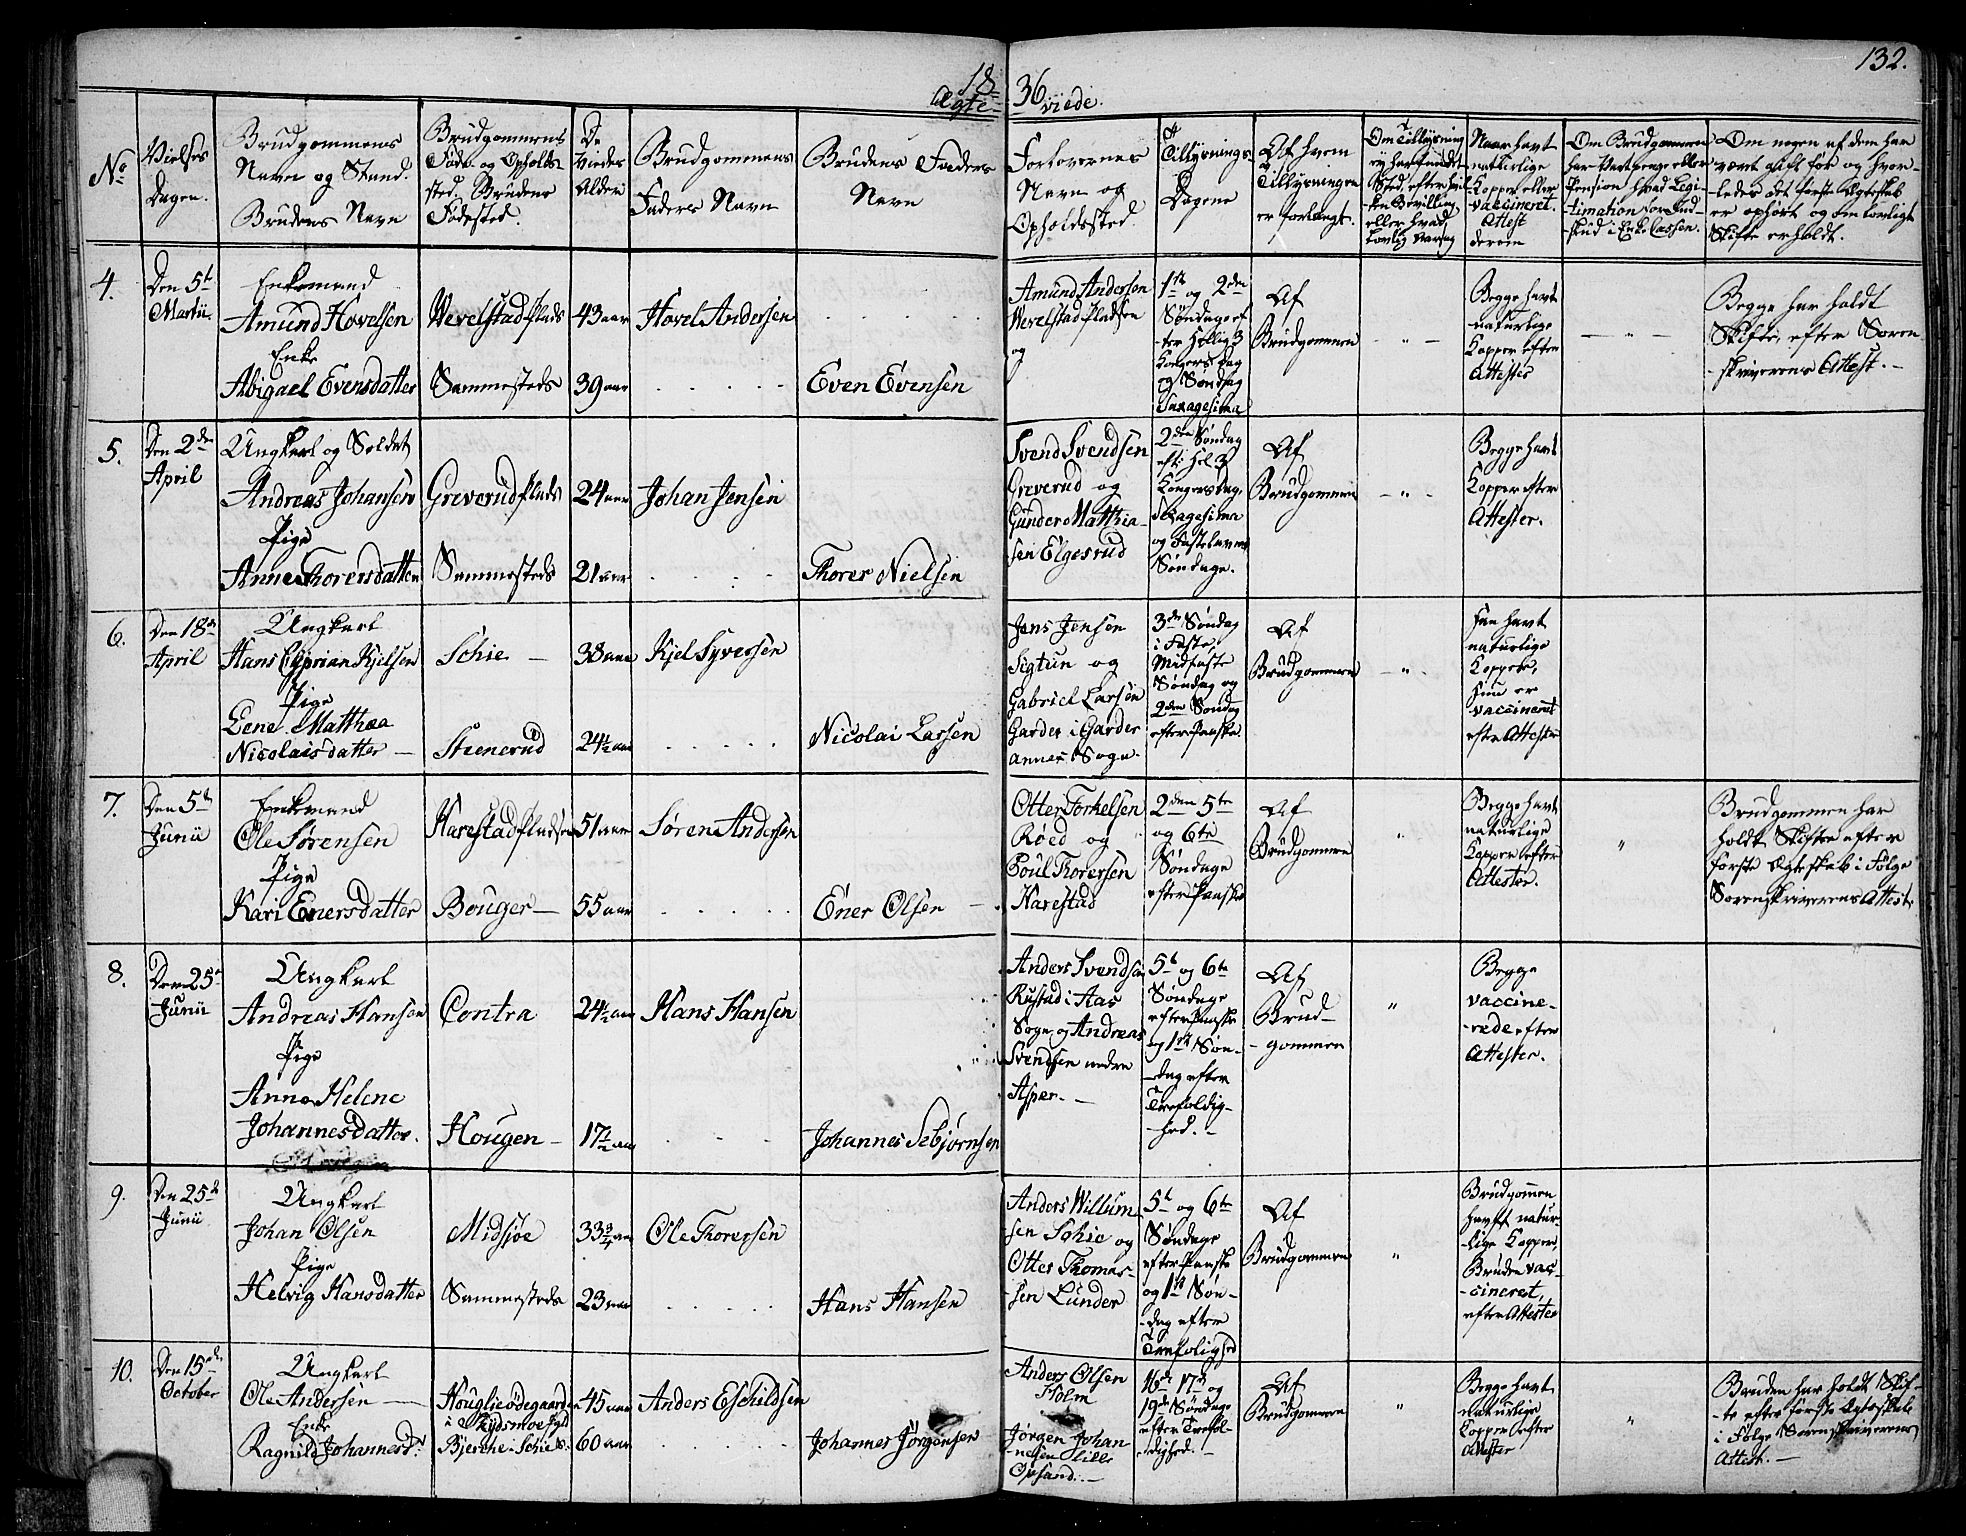 132.
1836
Ægteviede.
No
Vielses
Dagen.
Brudgommens
Navn og Stand.
Brudens Navn
Brudgommens
Føde- og Opholds-
sted, Brudens
Fødested.
De
Viedes
Alder
Brudgommens
Faders Navn
Brudens Faders
Navn
Forlovernes
Navn og
Opholdssted.
Tillysnings-
Dagene
Af hvem
Tillysningen
er forlangt.
Om Tillysning
er havt andet
Sted, efter hvil
-ken Bevilling
eller hvad
lovlig Aarsag
Naar havt
naturlige
Kopper eller
vaccineret.
Attest
derom
Om Brudgommen
har Vartpenge eller
Pension hvad Legi
-timation for Ind
-skud i Enke Cassen.
Om nogen af dem har
været gift før og hvor-
-ledes det første Ægteskab
er ophørt og om lovligt
Skifte er holdt.
4.
Den 5te
Martii.
Enkemand
Amund Hovelsen
Enke
Abigael Evensdatter
Wevelstadplads
Sammesteds
43 aar
39 aar
Hovel Andersen
Even Evensen
Amund Andersen
Wevelstadpladsen
og
1ste og 2den
Søndage ef
-ter Hellig 3
Kongers Dag
og Søndag
Sexagesima
Af
Brudgommen
Begge havt
naturlige
Kopper efter
Attester
Begge har holdt
Skifte, efter Soren
-skriverens Attest. -
5.
Den 2den
April
Ungkarl og Soldat
Andreas Johansen
Pige
Anne Thorersdatter
Greverudplads
Sammesteds
24 aar
21 aar
Johan Jensen
Thorer Nielsen
Svend Svendsen
Greverud og
Gunder Matthia-
sen Elgesrud
2den Søndag
eft. Hel. 3
Kongersdag,
Sexagesima
og Fastelavns
Søndage.
Af
Brudgommen
Begge havt
Kopper efter
Attester.
6.
Den 18de
April
Ungkarl
Hans Cyprian Kjelsen
Pige
Lene Matthea
Nicolaisdatter -
Schie -
Steenerud
38 aar
24½ aar
Kjel Syversen
Nicolai Larsen
Jens Jensen
Sigtun og
Gabriel Larsen
Garder i Garder
annex Sogn.
3die Søndag
i Faste,
Midfaste
Søndag og
2den Søndag
efter Paaske.
Af
Brudgommen
Han havt
naturlige
Kopper,
hun er
vaccineret
efter Attester
7.
Den 5te
Junii
Enkemand
Ole Sørensen
Pige
Kari Enersdatter
Harestadpladsen
Bouger -
51 aar
55 aar
Søren Andersen
Ener Olsen -
Otter Torkelsen
Røed og
Poul Thorersen
Harestad
2den 5te
og 6te
Søndage
efter Paaske
Af
Brudgommen
Begge havt
naturlige
Kopper efter
Attester.
Brudgommen har
holdt Skifte efter
første Ægteskab i Følge
Sorenskriverens Attest.
8.
Den 25de
Junii
Ungkarl
Andreas Hansen
Pige
Anne Helene
Johannesdatter.
Contra
Hougen -
24½ aar
17½ aar
Hans Hansen
Johannes Sebjørnsen
Anders Svendsen
Rustad i Aas
Sogn og Andreas
Svendsen nedre
Asper. -
5te og 6te
Søndage
efter Paaske
og 1ste Søn-
-dag efter
Trefoldig-
-hed. -
Af
Brud-
-gommen
Begge
vaccine-
-rede efter
Attester.
9.
Den 25de
Junii
Ungkarl
Johan Olsen
Pige
Helvig Hansdatter
Midsjøe
Sammesteds
33¾ aar
23 aar
Ole Thorersen
Hans Hansen
Anders Willum-
sen Schie og
Otter Thomas-
-sen Lunder
5te og 6te
Søndage
efter Paaske
og 1ste Søn-
-dag efter
Trefolighed
Af
Brudgommen
Brudgommen
havft natur-
-lige Kopper,
Bruden vac-
-cineret,
efter Attester
10.
Den 15de
October
Ungkarl
Ole Andersen
Enke
Ragnild Johannesd.
Hougliødegaard
i Kydsmoe Sgd
Bjerke i Schie S.
45 aar
60 aar
Anders Eschildsen
Johannes Jørgensen
Anders Olsen
Holm
Jørgen Johan
-nesen Lille
Opsand. -
16de 17de og
19de Søndage
efter Trefol-
-dighed. -
Af
Brudgommen
Begge havt
naturlige
Kopper efter
Attester
Bruden har holdt Skif-
-te efter første Ægteskab
i Følge Sorenskriverens
Attest. -